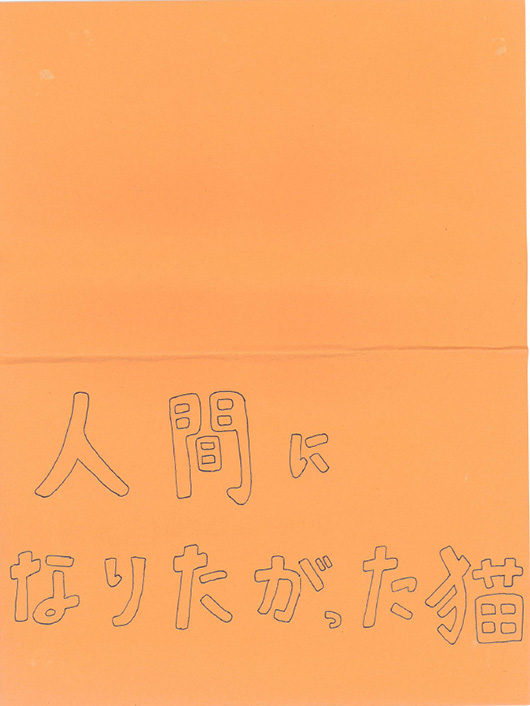 人間に
なりたがった猫